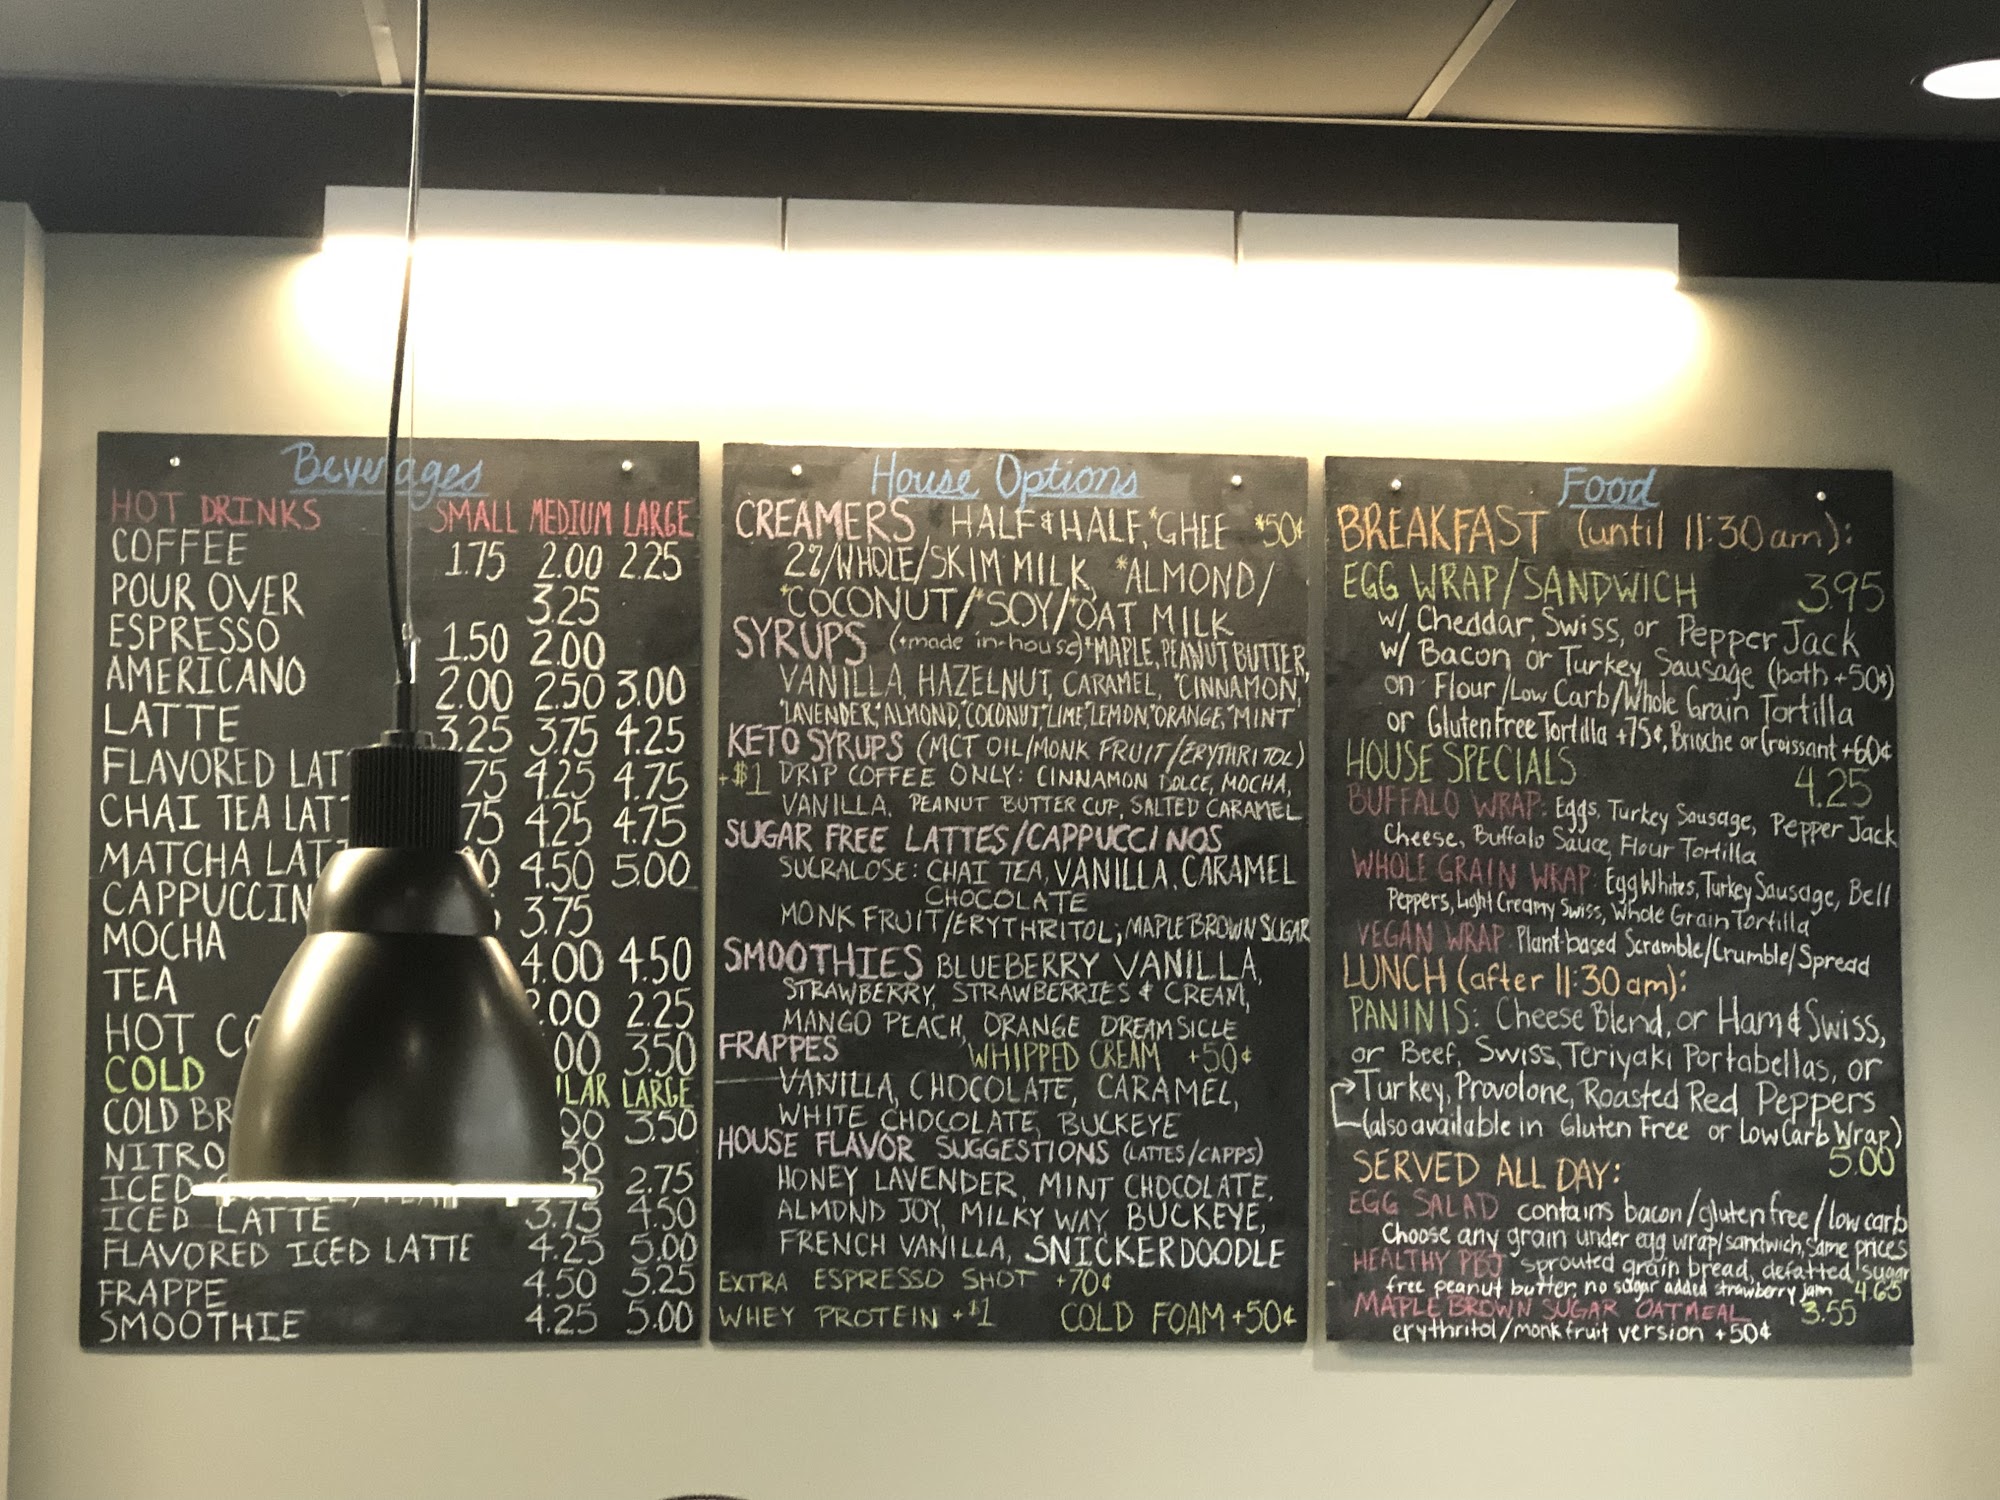 Beverages
HOT DRINKS SMALL MEDIUM LARGE
COFFEE 1.75 2.00 2.25
POUR OVER 3.25
ESPRESSO 1.50 2.00
AMERICANO 2.00 2.50 3.00
LATTE 3.25 3.75 4.25
FLAVORED 4.25 4.75
CHAI TEA 4.25 4.75
MATCHA 4.50 5.00
3.75
MOCHA 4.00 4.50
TEA 2.25
HOT 3.50
COLD LARGE
COLD 3.50
NITRO
ICED 2.75
ICED LATTE 3.75 4.50
FLAVORED ICED LATTE 4.25 5.00
FRAPPE 4.50 5.25
SMOOTHIE 4.25 5.00
House Options
CREAMERS HALF & HALF, *GHEE *50¢
2%/WHOLE/SKIM MILK, *ALMOND/
*COCONUT/*SOY/*OAT MILK
SYRUPS (+made in-house) +MAPLE, PEANUT BUTTER,
VANILLA, HAZELNUT, CARAMEL, +CINNAMON,
+LAVENDER, +ALMOND, +COCONUT, +LIME, +LEMON, +ORANGE, +MINT
KETO SYRUPS (MCT OIL/MONK FRUIT/ERYTHRITOL)
+$1 DRIP COFFEE ONLY: CINNAMON DOLCE, MOCHA,
VANILLA, PEANUT BUTTER CUP, SALTED CARAMEL
SUGAR FREE LATTES/CAPPUCCINOS
SUCRALOSE: CHAI TEA, VANILLA, CARAMEL
CHOCOLATE
MONK FRUIT/ERYTHRITOL; MAPLE BROWN SUGAR
SMOOTHIES BLUEBERRY VANILLA,
STRAWBERRY, STRAWBERRIES & CREAM,
MANGO PEACH, ORANGE DREAMSICLE
FRAPPES WHIPPED CREAM +50¢
VANILLA, CHOCOLATE, CARAMEL,
WHITE CHOCOLATE, BUCKEYE
HOUSE FLAVOR SUGGESTIONS (LATTES/CAPPS)
HONEY LAVENDER, MINT CHOCOLATE,
ALMOND JOY, MILKY WAY, BUCKEYE,
FRENCH VANILLA, SNICKERDOODLE
EXTRA ESPRESSO SHOT +70¢
WHEY PROTEIN +$1 COLD FOAM +50¢
Food
BREAKFAST (until 11:30 am):
EGG WRAP/SANDWICH 3.95
w/ Cheddar, Swiss, or Pepper Jack
w/ Bacon or Turkey Sausage (both +50¢)
on Flour/Low Carb/Whole Grain Tortilla
or Gluten Free Tortilla +75¢, Brioche or Croissant +60¢
HOUSE SPECIALS 4.25
BUFFALO WRAP: Eggs, Turkey Sausage, Pepper Jack
Cheese, Buffalo Sauce, Flour Tortilla
WHOLE GRAIN WRAP: Egg Whites, Turkey Sausage, Bell
Peppers, Light Creamy Swiss, Whole Grain Tortilla
VEGAN WRAP: Plant-based Scramble/Crumble/Spread
LUNCH (after 11:30 am):
PANINIS: Cheese Blend, or Ham & Swiss,
or Beef, Swiss, Teriyaki Portabellas, or
Turkey, Provolone, Roasted Red Peppers
(also available in Gluten Free or Low Carb Wrap)
5.00
SERVED ALL DAY:
EGG SALAD contains bacon/gluten free/low carb
Choose any grain under egg wrap/sandwich, same prices
HEALTHY PBJ sprouted grain bread, defatted sugar
free peanut butter, no sugar added strawberry jam 4.65
MAPLE BROWN SUGAR OATMEAL 3.55
erythritol/monkfruit version +50¢